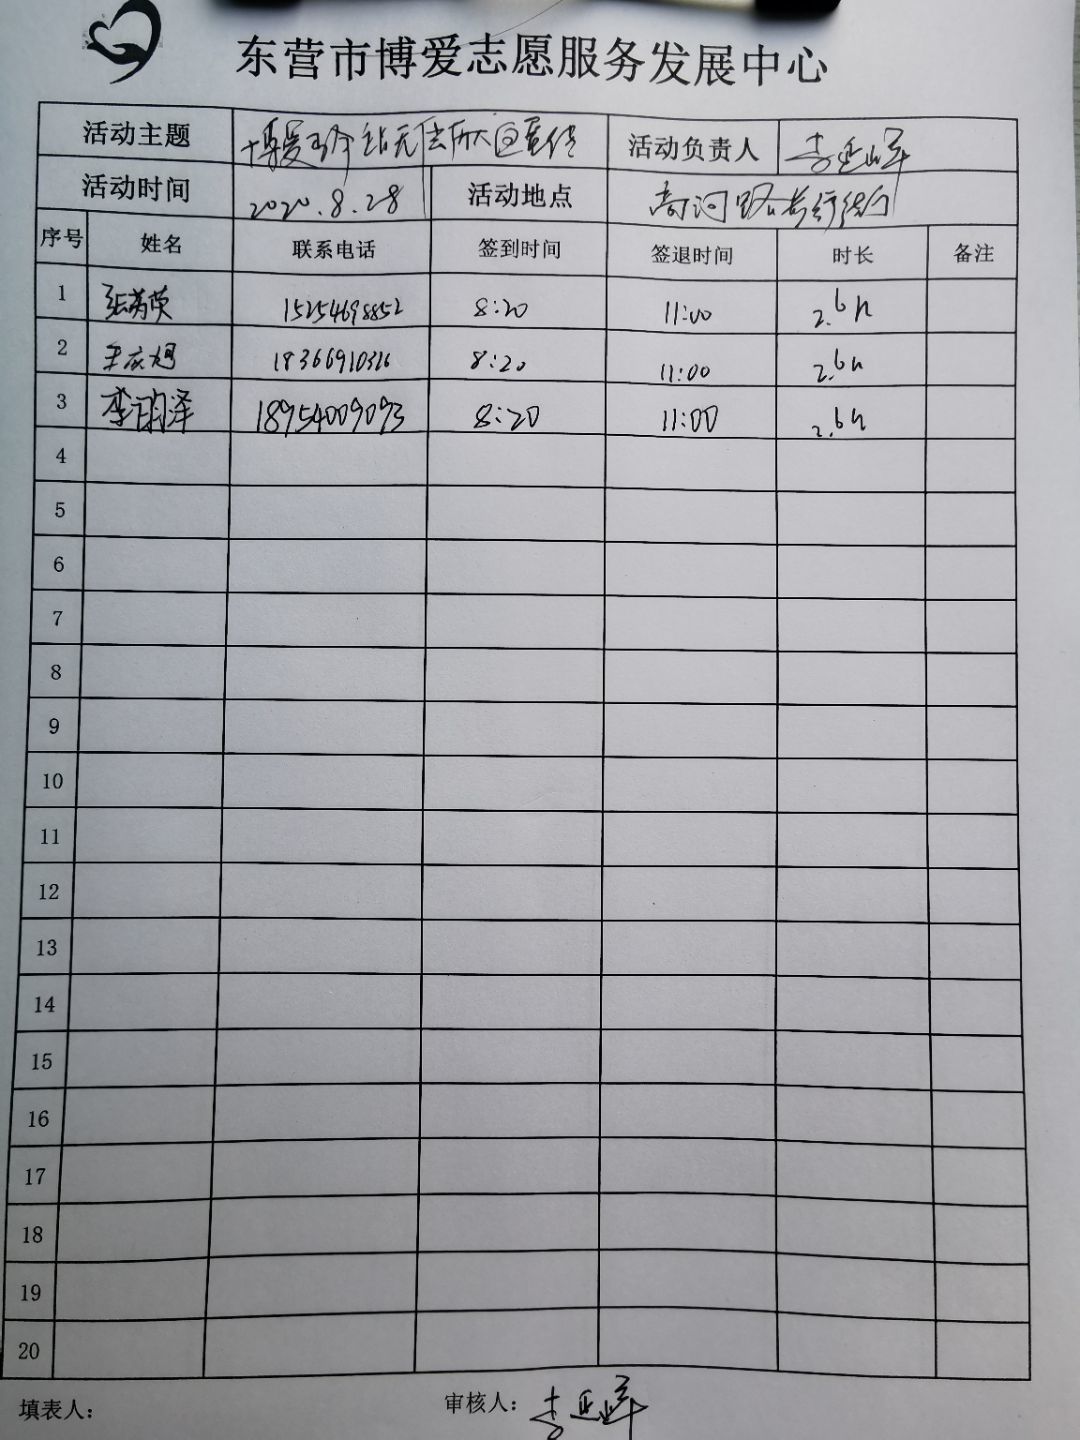 东营市博爱志愿服务发展中心
活动主题 博爱 站无 宣传 活动负责人 李
活动时间 2020.8.28 活动地点 商河路
序号 姓名 联系电话 签到时间 签退时间 时长 备注
1 张 荣 15254698852 8:20 11:00 2.6h
2 王 18366910316 8:20 11:00 2.6h
3 李 泽 18954009093 8:20 11:00 2.6h
4
5
6
7
8
9
10
11
12
13
14
15
16
17
18
19
20
填表人: 审核人: 李